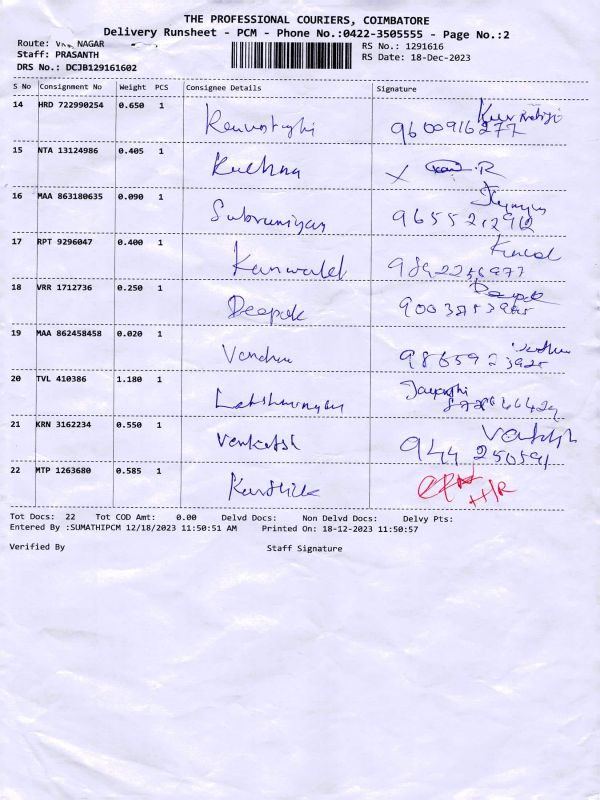 THE PROFESSIONAL COURIERS, COIMBATORE
Delivery Runsheet - PCM - Phone No.:0422-3505555 - Page No.:2
Route: NAGAR
RS No.: 1291616
Staff: PRASANTH
RS Date: 18-Dec-2023
DRS No.: DCJB129161602
S No Consignment No Weight PCS Consignee Details Signature
14 HRD 722990254 0.650 1 9600916277
15 NTA 13124986 0.405 1 Krishna X R
16 MAA 863180635 0.090 1 Subramiyan
17 RPT 9296047 0.400 1
18 VRR 1712736 0.250 1 Deepak Deepak
19 MAA 862458458 0.020 1 Vandana
20 TVL 410386 1.180 1
21 KRN 3162234 0.550 1 Venkatesh
22 MTP 1263680 0.585 1 Karthick
Tot Docs: 22 Tot COD Amt: 0.00 Delvd Docs: Non Delvd Docs: Delvy Pts:
Entered By :SUMATHIPCM 12/18/2023 11:50:51 AM Printed On: 18-12-2023 11:50:57
Verified By Staff Signature